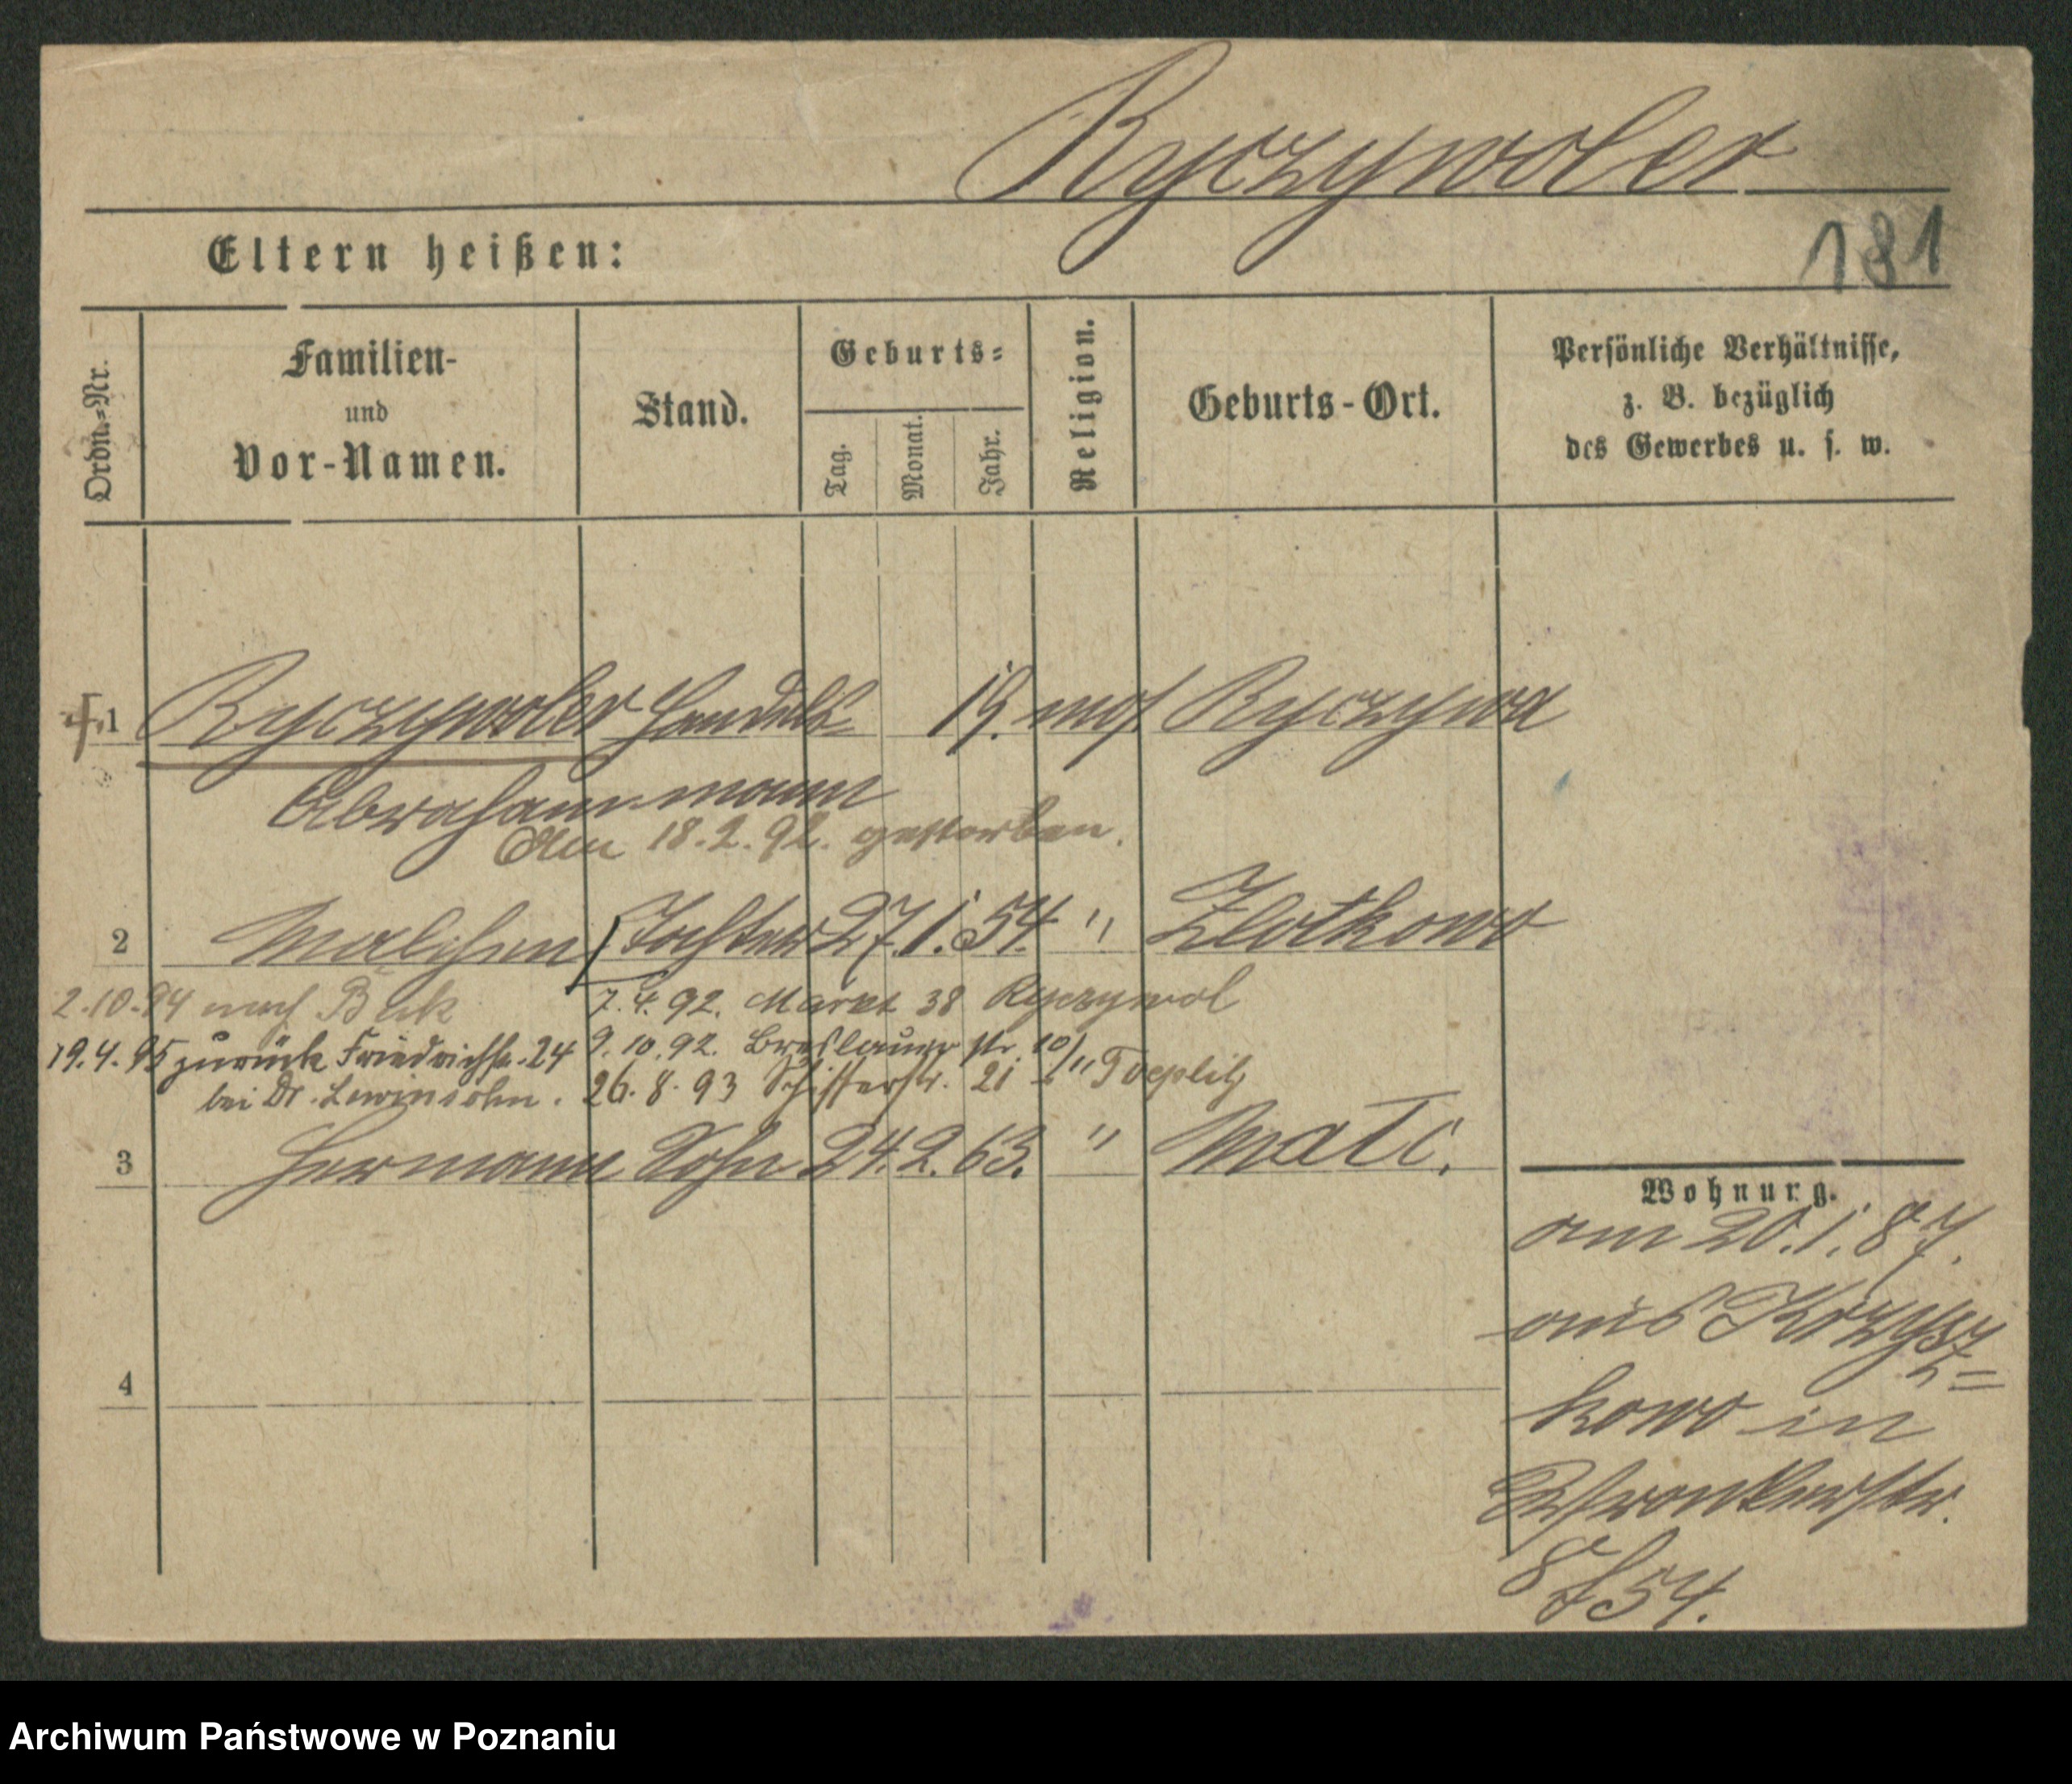 Ryczywoler
181
Eltern heißen:
Ordn.-Nr.
Familien-
und
Vor-Namen.
Stand.
Geburts-
Tag.
Monat.
Jahr.
Religion.
Geburts-Ort.
Persönliche Verhältnisse,
z. B. bezüglich
des Gewerbes u. s. w.
1 Ryczywoler Handels- 19. mos. Ryczywol
Abraham mann
Am 18.2.92. gestorben.
2 Malchen Tochter 27.1.54. " Zlotkowo
2.10.94 nach
7.4.92. Markt 38 Ryczywol
19.4.95 zurück Friedrichstr. 24
9.10.92. Breslauer str. 10/
bei Dr. Lewinsohn.
26.8.93 Schifferstr. 21 b/ Toeplitz
3 Hermann Sohn 24.2.63. "
4
Wohnung.
am 20.1.87.
aus Krzysz=
kowo in
Wronkerstr.
8 54.